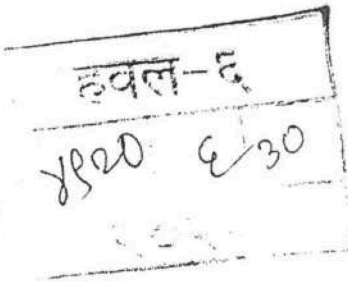 हवल-६
४९२० ६/३०